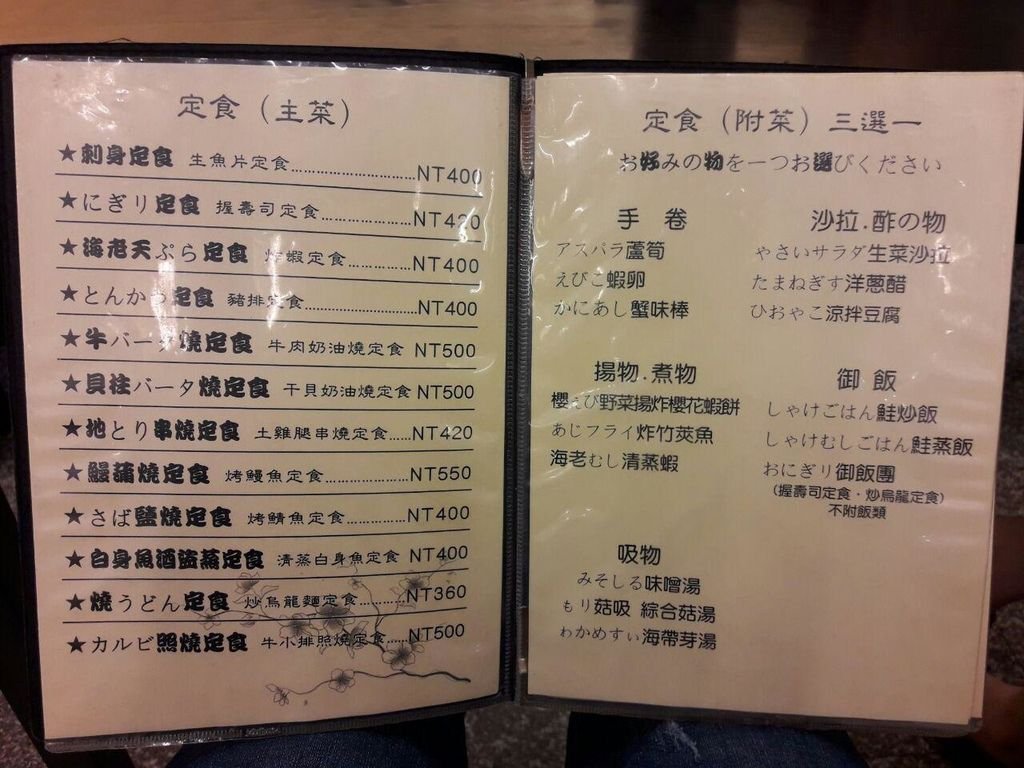 定食（主菜）
★刺身定食 生魚片定食……………………………NT400
★にぎり定食 握壽司定食……………………NT420
★海老天ぷら定食 炸蝦定食………………NT400
★とんかつ定食 豬排定食……………………NT400
★牛バータ燒定食 牛肉奶油燒定食 NT500
★貝柱バータ燒定食 干貝奶油燒定食 NT500
★地とり串燒定食 土雞腿串燒定食……NT420
★鰻蒲燒定食 烤鰻魚定食……………………NT550
★さば鹽燒定食 烤鯖魚定食………………NT400
★白身魚酒盜蒸定食 清蒸白身魚定食 NT400
★燒うどん定食 炒烏龍麵定食…………NT360
★カルビ照燒定食 牛小排照燒定食……NT500
定食（附菜）三選一
お好みの物を一つお選びください
手 卷
アスパラ蘆筍
えびこ蝦卵
かにあし蟹味棒
沙拉.酢の物
やさいサラダ生菜沙拉
たまねぎす洋蔥醋
ひおやこ涼拌豆腐
揚物.煮物
櫻えび野菜揚炸櫻花蝦餅
あじフライ炸竹莢魚
海老むし清蒸蝦
御 飯
しゃけごはん鮭炒飯
しゃけむしごはん鮭蒸飯
おにぎり御飯團
（握壽司定食·炒烏龍定食）
不附飯類
吸物
みそしる味噌湯
もり菇吸 綜合菇湯
わかめすい海帶芽湯